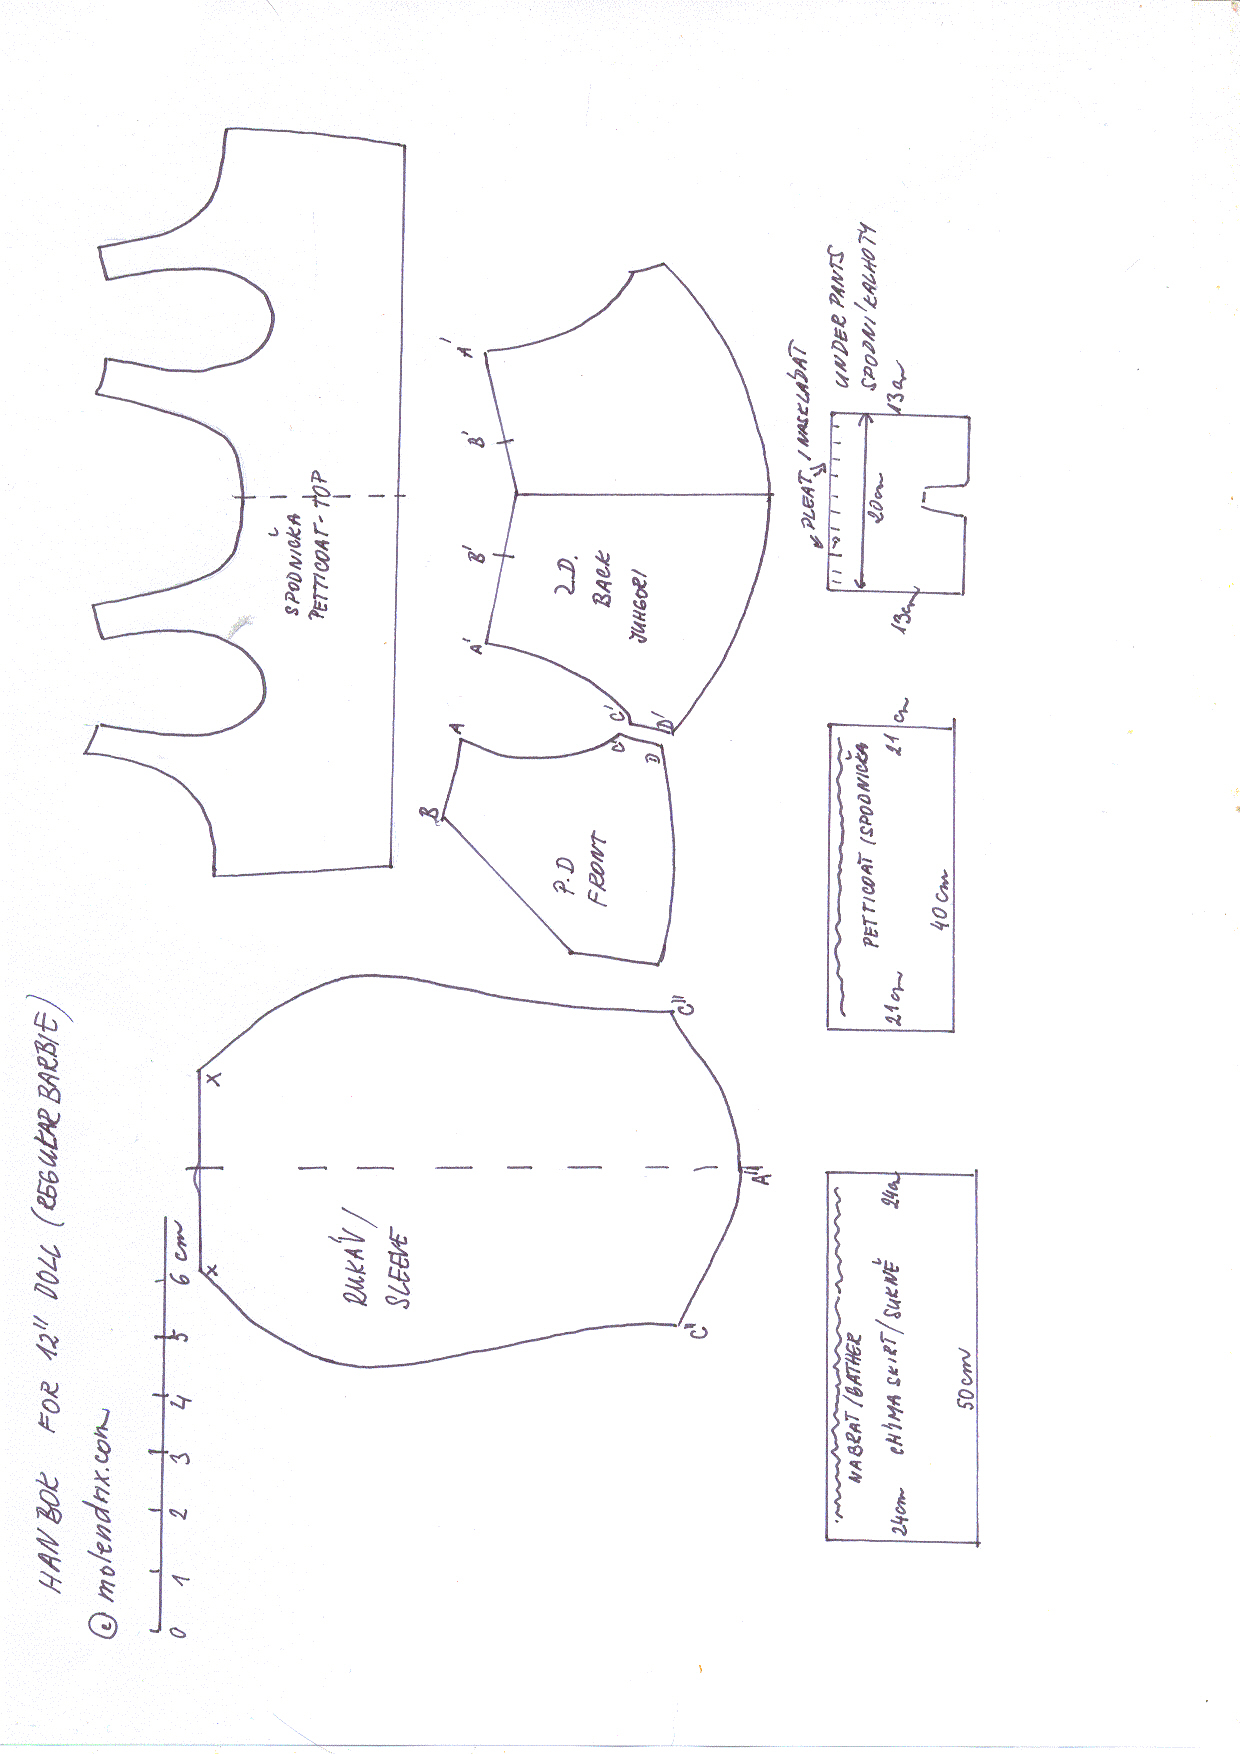 HANBOK FOR 12" DOLL (REGULAR BARBIE)
© molendrix.com
0 1 2 3 4 5 6 cm
X
X
RUKÁV /
SLEEVE
C"
C"
A"
SPODNIČKA
PETTICOAT-TOP
B
A
C
D
P.D
FRONT
A'
B'
B'
A'
C'
D'
ZD.
BACK
JUHGORI
NABRAT/GATHER
24cm CHIMA SKIRT/SUKNĚ 24cm
50cm
PETTICOAT/SPODNIČKA
21cm
21cm
40cm
PLEAT / NASKLÁDAT
UNDER PANTS
SPODNÍ KALHOTY
13cm
20cm
13cm